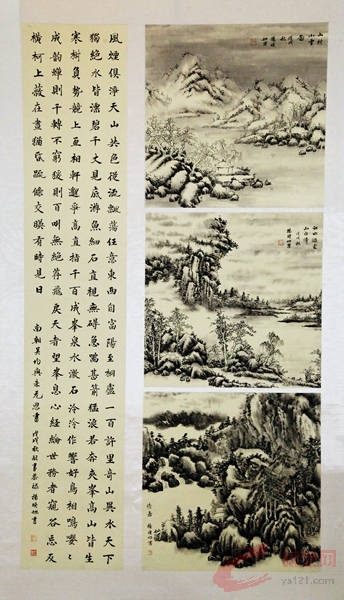 風煙俱淨天山共色從流飄蕩任意東西自富陽至桐廬一百許里奇山異水天下
獨絕水皆漂碧千丈見底游魚細石直視無礙急湍甚箭猛浪若奔夾峯高山皆生
寒樹負勢競上互相軒邈爭高直指千百成峯泉水激石泠泠作響好鳥相鳴嚶嚶
成韻蟬則千轉不窮猨則百叫無絕鳶飛戾天者望峯息心經綸世務者窺谷忘反
橫柯上蔽在晝猶昏疏條交映有時見日
南朝吳均與朱元思書 戊戌秋
ys121.com